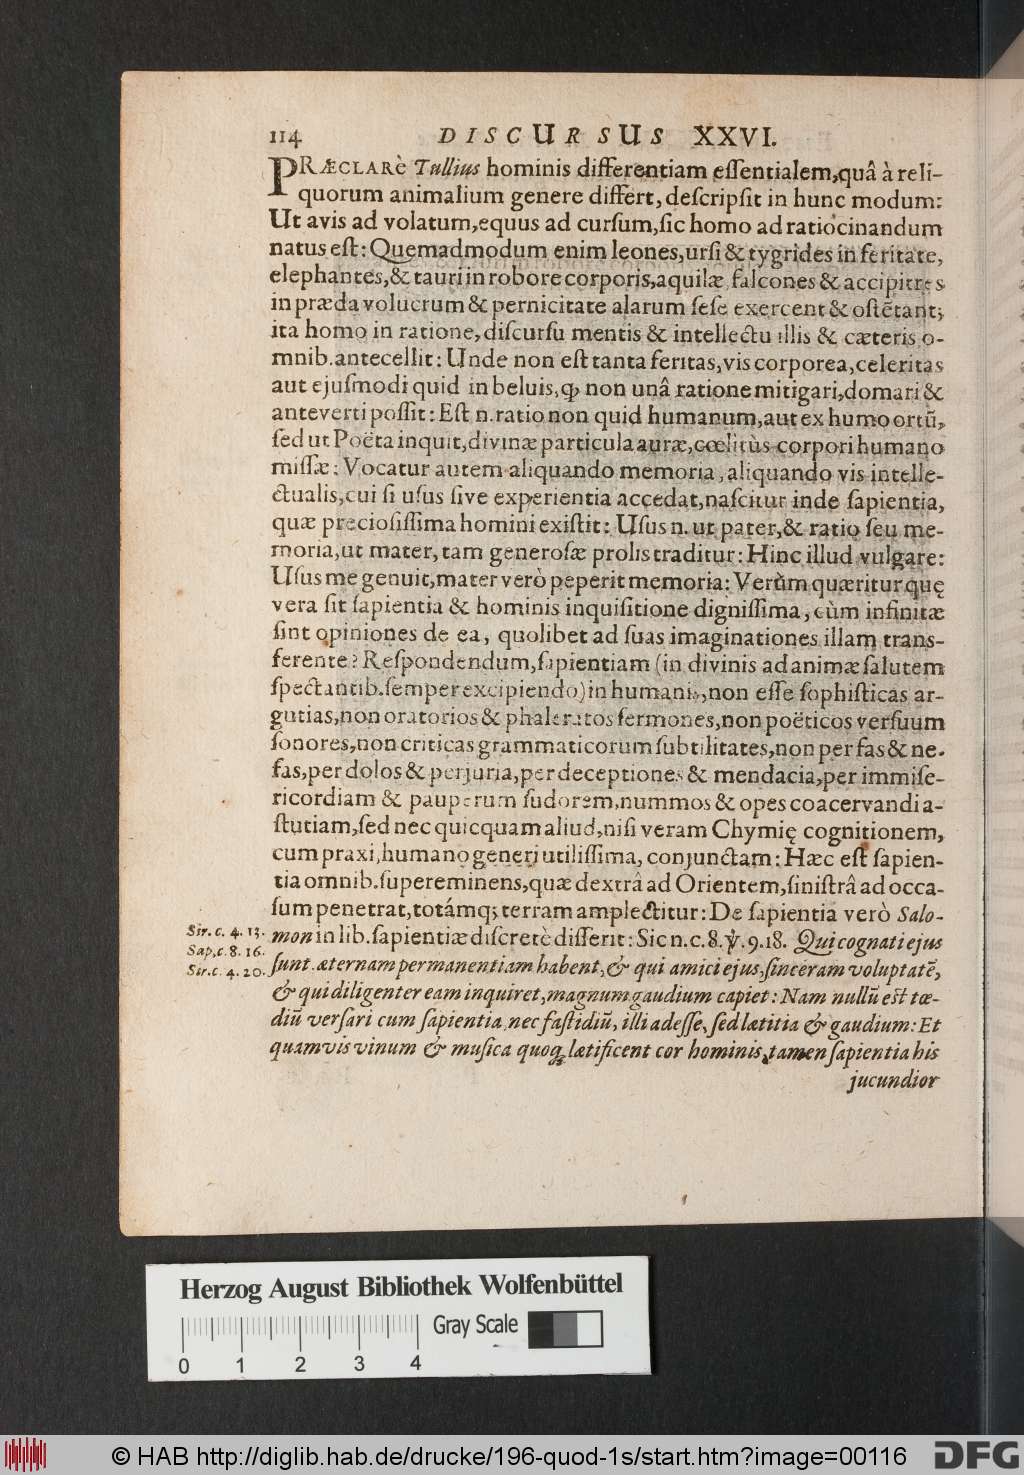 114 DISCURSUS XXVI.
PRÆCLARè Tullius hominis differentiam eſſentialem,quâ à reli-
quorum animalium genere differt, deſcripſit in hunc modum:
Ut avis ad volatum,equus ad curſum,ſic homo ad ratiocinandum
natus eſt: Quemadmodum enim leones,urſi & tygrides in feritate,
elephantes,& tauri in robore corporis,aquilæ falcones & accipitres
in præda volucrum & pernicitate alarum ſeſe exercent & oſtẽtant;
ita homo in ratione, diſcurſu mentis & intellectu illis & cæteris o-
mnib. antecellit: Unde non eſt tanta feritas, vis corporea, celeritas
aut ejuſmodi quid in beluis,ꝙ non unâ ratione mitigari,domari &
anteverti poſſit: Eſt n. ratio non quid humanum,aut ex humo ortũ,
ſed ut Poëta inquit,divinæ particula auræ,cœlitùs corpori humano
miſſæ: Vocatur autem aliquando memoria, aliquando vis intelle-
ctualis,cui ſi uſus ſive experientia accedat,naſcitur inde ſapientia,
quæ precioſiſſima homini exiſtit: Uſus n. ut pater,& ratio ſeu me-
moria,ut mater, tam generoſæ prolis traditur: Hinc illud vulgare:
Uſus me genuit,mater verò peperit memoria: Verùm quæritur quę
vera ſit ſapientia & hominis inquiſitione digniſſima, cùm infinitæ
ſint opiniones de ea, quolibet ad ſuas imaginationes illam trans-
ferente? Reſpondendum,ſapientiam (in divinis ad animæ ſalutem
ſpectantib. ſemper excipiendo) in humanis,non eſſe ſophiſticas ar-
gutias,non oratorios & phaleratos ſermones,non poëticos verſuum
ſonores,non criticas grammaticorum ſubtilitates,non per fas & ne-
fas,per dolos & perjuria,per deceptiones & mendacia,per immiſe-
ricordiam & pauperum ſudorem,nummos & opes coacervandi a-
ſtutiam,ſed nec quicquam aliud,niſi veram Chymię cognitionem,
cum praxi,humano generi utiliſſima, conjunctam: Hæc eſt ſapien-
tia omnib. ſupereminens,quæ dextrâ ad Orientem,ſiniſtrâ ad occa-
ſum penetrat,totámq; terram amplectitur: De ſapientia verò Salo-
Sir. c. 4. 13.
mon in lib. ſapientiæ diſcretè differit: Sic n. c. 8. ℣. 9. 18. Qui cognati ejus
Sap. c. 8. 16.
ſunt æternam permanentiam habent, & qui amici ejus,ſinceram voluptatẽ,
Sir. c. 4. 20.
& qui diligenter eam inquiret,magnum gaudium capiet: Nam nullũ eſt tæ-
diũ verſari cum ſapientia, nec faſtidiũ, illi adeſſe, ſed lætitia & gaudium: Et
quamvis vinum & muſica quoq; lætificent cor hominis, tamen ſapientia his
jucundior
Herzog August Bibliothek Wolfenbüttel
Gray Scale
0 1 2 3 4
© HAB http://diglib.hab.de/drucke/196-quod-1s/start.htm?image=00116
DFG